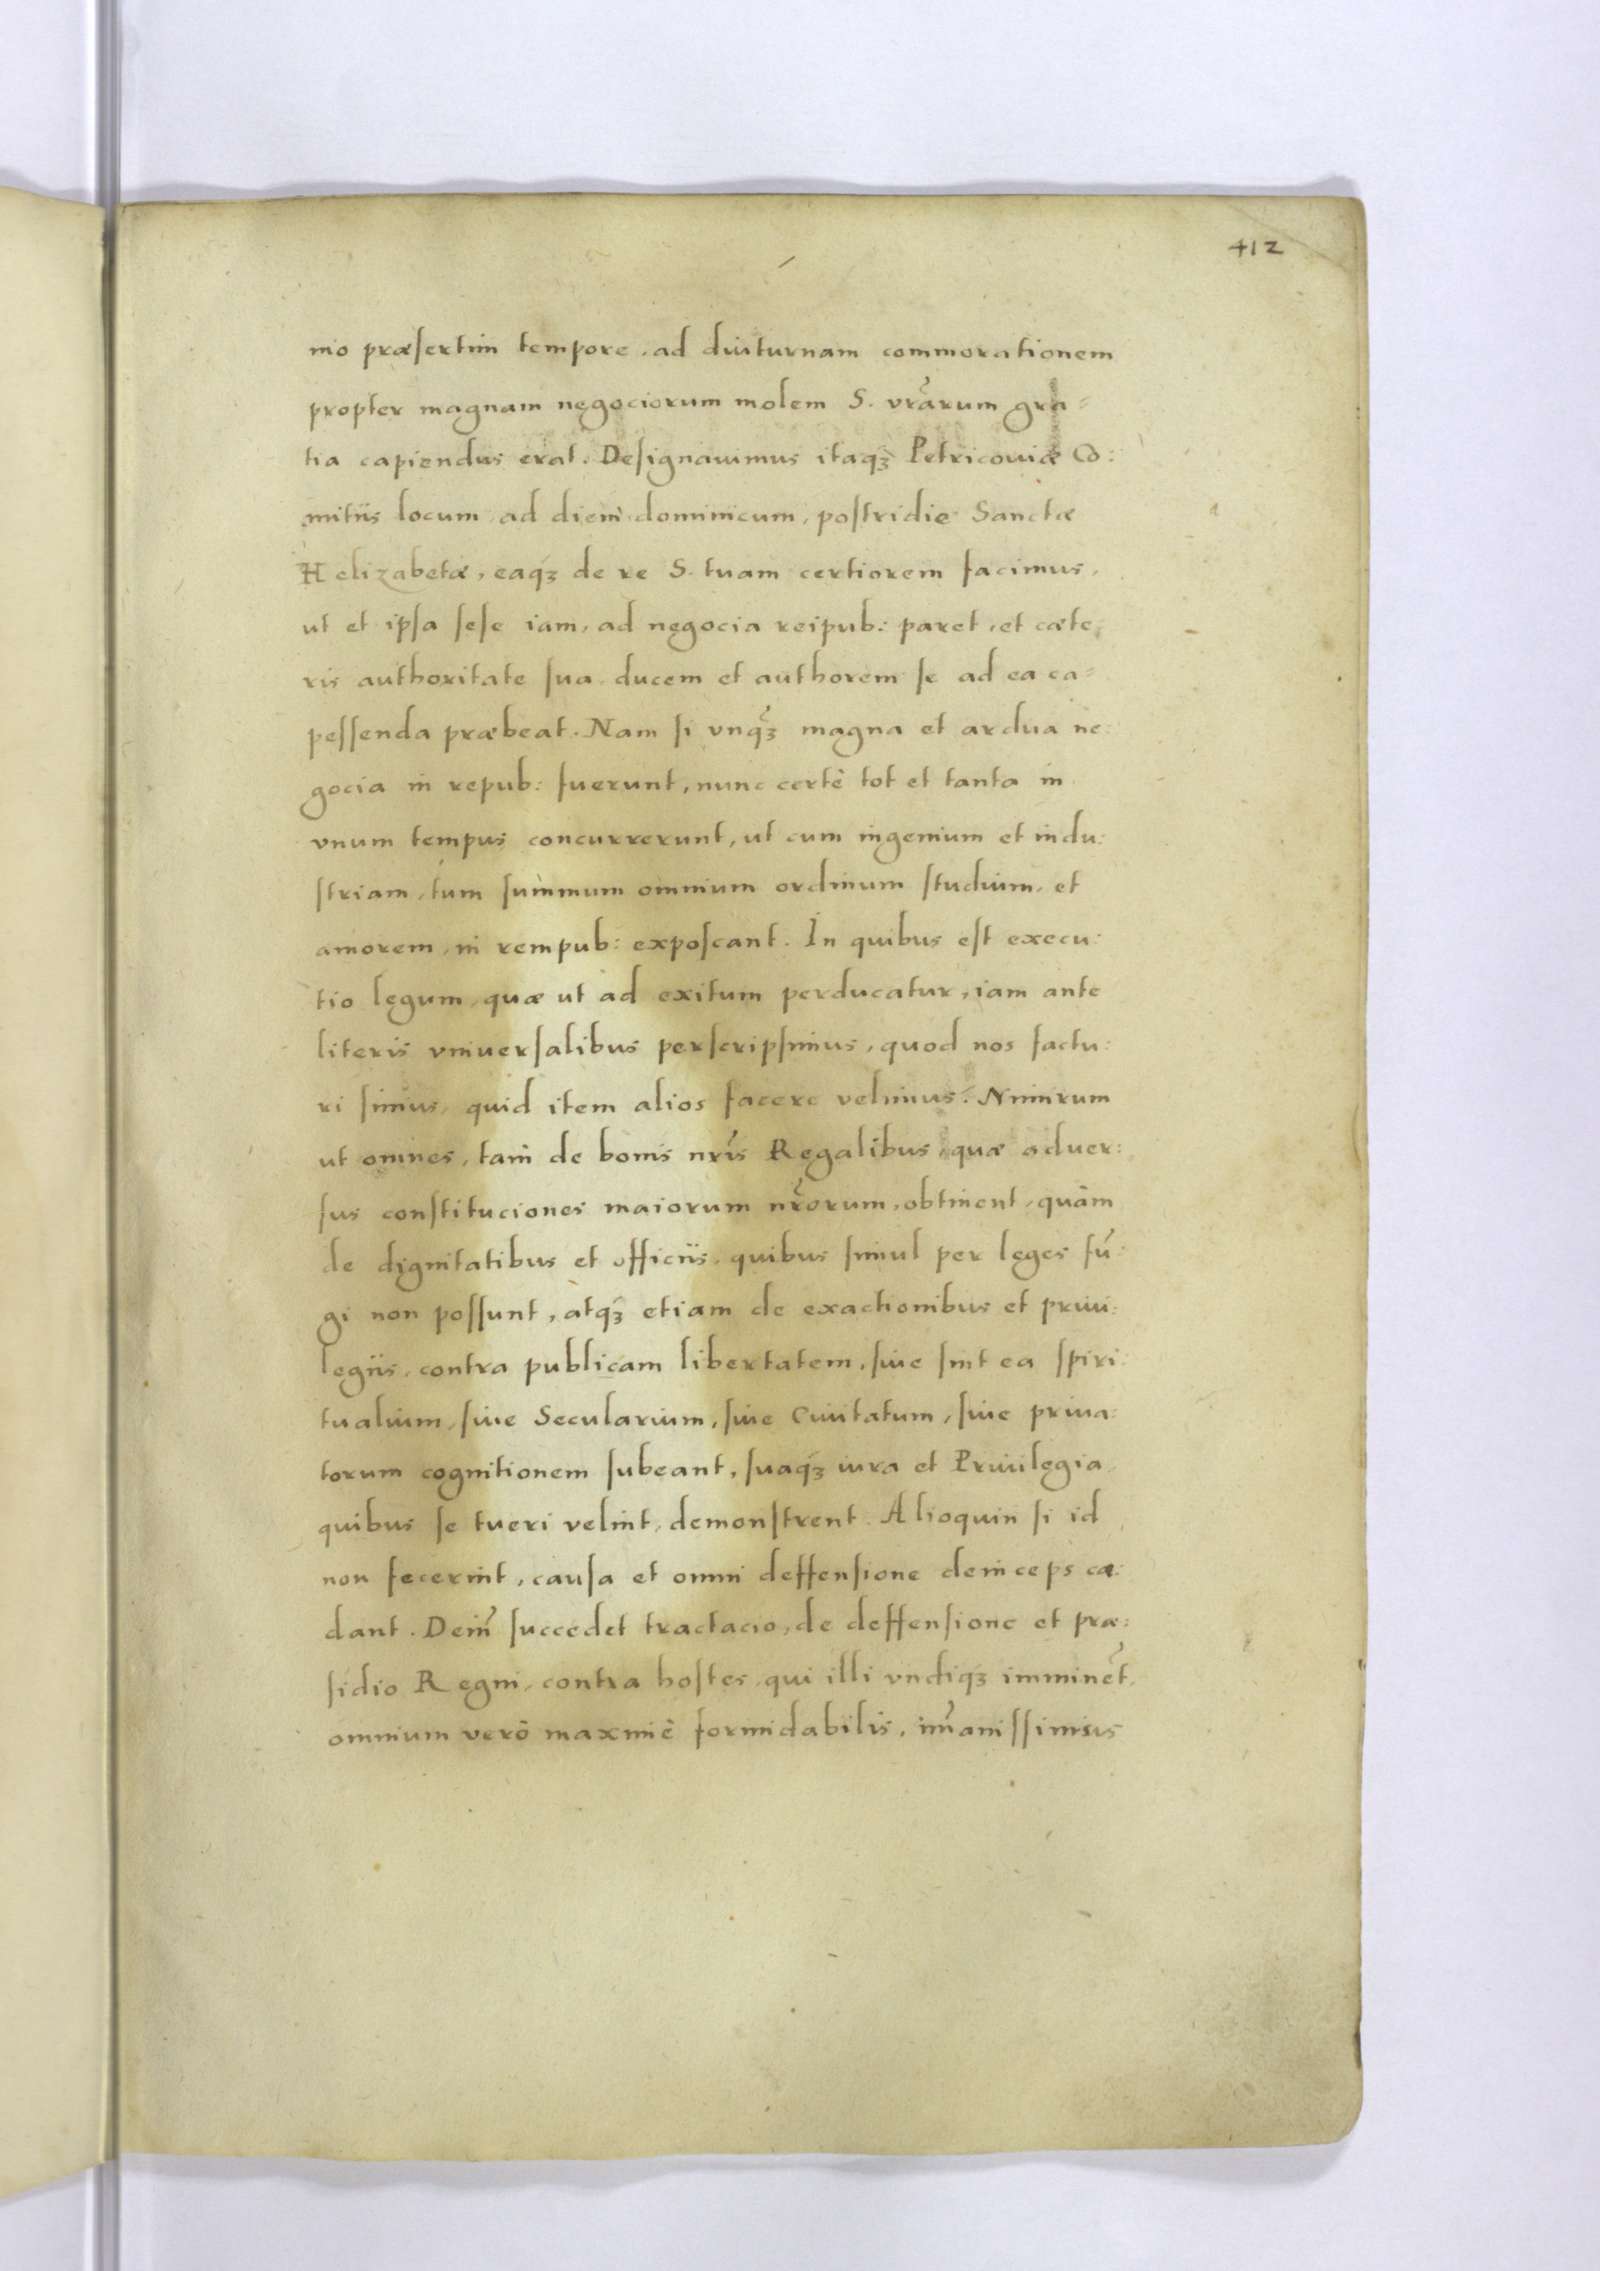 412
mo præsertim tempore, ad diuturnam commorationem
propter magnam negociorum molem S. vr̃arum gra=
tia capiendus erat. Designauimus itaqʒ Petricouiæ Co:
mitiis locum, ad diem dominicum, postridie Sanctæ
Helizabetæ, eaqʒ de re S. tuam certiorem facimus,
ut et ipsa sese iam, ad negocia reipub: paret, et cæte:
ris authoritate sua ducem et authorem se ad ea ca=
pessenda præbeat. Nam si vnqʒ̃ magna et ardua ne:
gocia in repub: fuerunt, nunc certè tot et tanta in
vnum tempus concurrerunt, ut cum ingenium et indu:
striam, tum summum omnium ordinum studium, et
amorem, in rempub: exposcant. In quibus est execu:
tio legum, quæ ut ad exitum perducatur, iam ante
literis vniuersalibus perscripsimus, quod nos factu:
ri simus, quid item alios facere velimus. Nimirum
ut omnes, tam de bonis nr̃is Regalibus, quæ aduer:
sus constituciones maiorum nr̃orum, obtinent, quàm
de dignitatibus et officiis, quibus simul per leges fũ:
gi non possunt, atqʒ etiam de exactionibus et priui:
legiis, contra publicam libertatem, siue sint ea spiri:
tualium, siue Secularium, siue Ciuitatum, siue priua:
torum cognitionem subeant, suaqʒ iura et Priuilegia,
quibus se tueri velint, demonstrent. Alioquin si id
non fecerint, causa et omni deffensione deinceps ca:
dant. Dein̄ succedet tractacio, de deffensione et præ:
sidio Regni, contra hostes, qui illi vndiqʒ imminẽt,
omnium verò maximè formidabilis, im̃anissimus